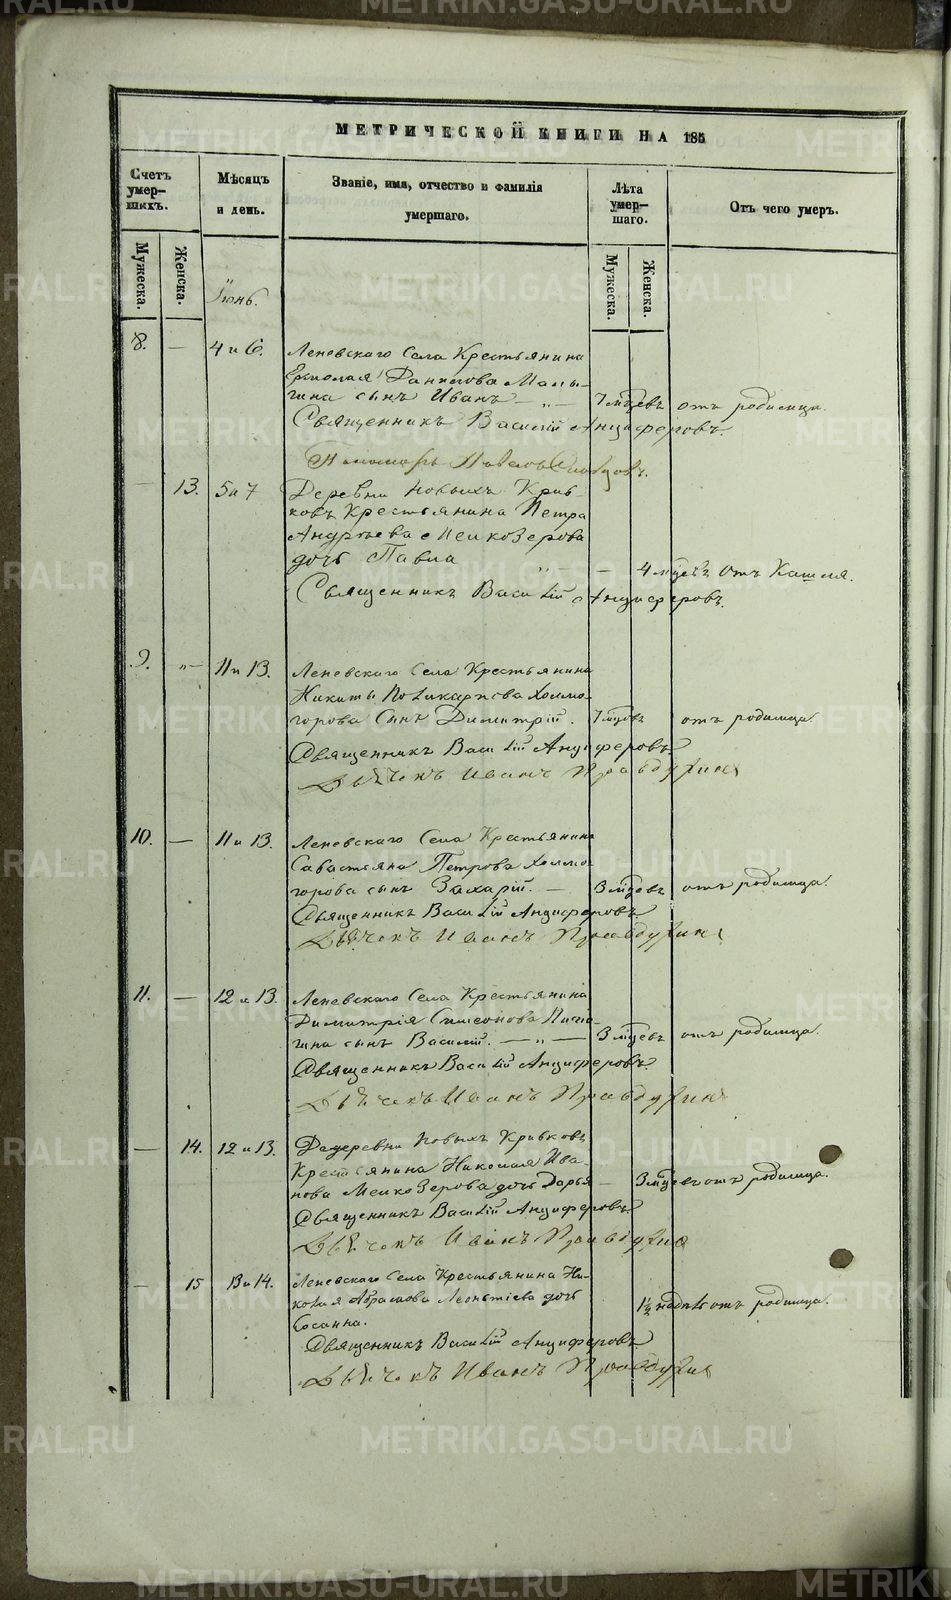 МЕТРИЧЕСКОЙ КНИГИ НА 185
Счетъ умер-шихъ.
Мѣсяцъ и день.
Званіе, имя, отчество и фамилія умершаго.
Лѣта умер-шаго.
Отъ чего умеръ.
Мужеска.
Женска.
Мужеска.
Женска.
Іюнь.
8. — 4 и 6. Леневскаго Села Крестьянина
Ермолая Данилова Малы-
гина сынъ Иванъ — „ — 7 мцевъ отъ родимца.
Священникъ Василій Анциферовъ.
Пономарь Павелъ
— 13. 5 и 7 Деревни Новыхъ Крив-
ковъ Крестьянина Петра
Андреева Мелкозерова
дочь Павла „ — — 4 мцевъ отъ Кашля.
Священникъ Василій Анциферовъ.
9. „ — 11 и 13. Леневскаго Села Крестьянина
Никиты Поликарпова Холмо-
горова Сынъ Димитрій. 7 мцовъ отъ родимца.
Священникъ Василій Анциферовъ
Дьячекъ Иванъ Правдухинъ
10. — 11 и 13. Леневскаго Села Крестьянина
Савастьяна Петрова Холмо-
горова сынъ Захарій. — 3 мцевъ отъ родимца.
Священникъ Василій Анциферовъ.
Дьячекъ Иванъ Правдухинъ
11. — 12 и 13. Леневскаго Села Крестьянина
Димитрія Симеонова
гина сынъ Василій. — „ — 3 мцевъ отъ родимца.
Священникъ Василій Анциферовъ.
Дьячекъ Иванъ Правдухинъ
— 14. 12 и 13. Новыхъ Кривковъ
Крестьянина Николая Ива-
нова Мелкозерова дочь Дарья — 3 мцевъ отъ родимца.
Священникъ Василій Анциферовъ
Дьячекъ Иванъ Правдухинъ
— 15 13 и 14. Леневскаго Села Крестьянина Ни-
колая Абрамова Леонтіева дочь
Сосанна. 1½ надѣл отъ родимца.
Священникъ Василій Анциферовъ
Дьячекъ Иванъ Правдухинъ
METRIKI.GASO-URAL.RU